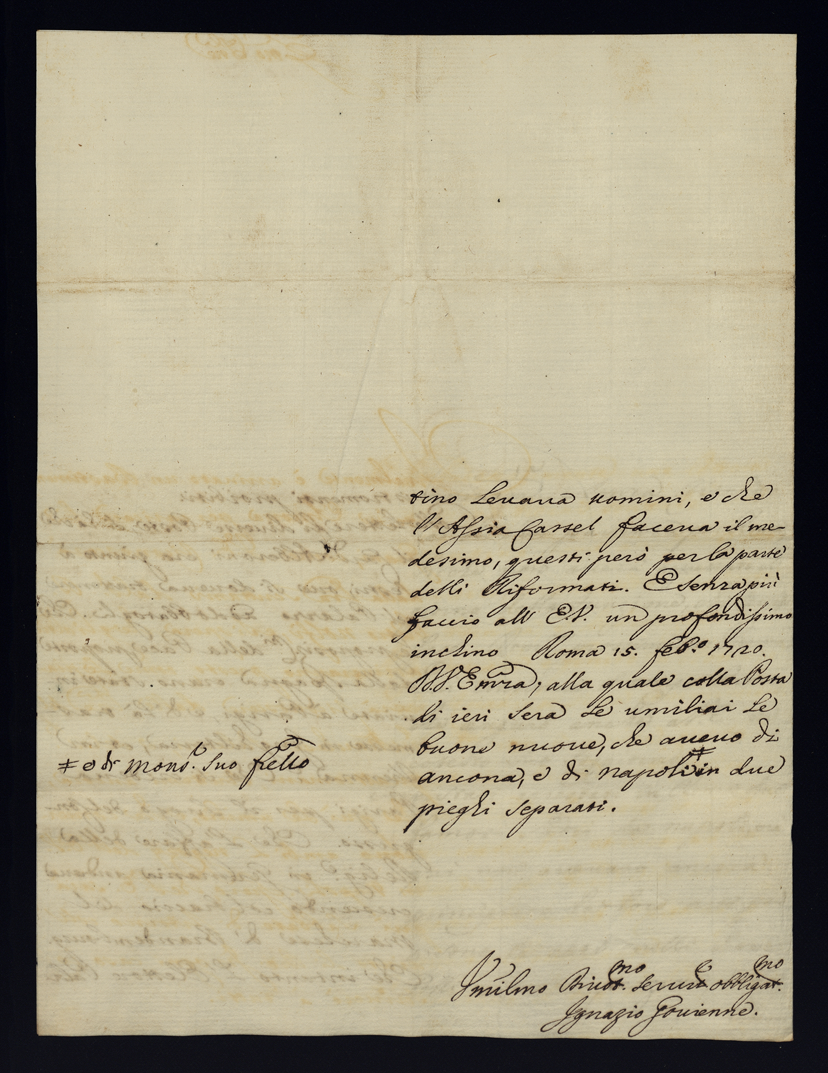 tino Levava uomini, e che
l'Assia Cassel faceva il me-
desimo, questi però per la parte
delli Riformati. E senza più
faccio all' E.V. un profondissimo
inchino Roma 15. feb.o 1720.
alla quale colla Posta
di ieri sera Le umiliai Le
buone nuove, che avevo di
ancona, e di napoli ≠ in due
pieghi separati.
≠ e di Mons.r Suo fr̃ello
Umilmo servit.e obbligat.mo
Ignazio